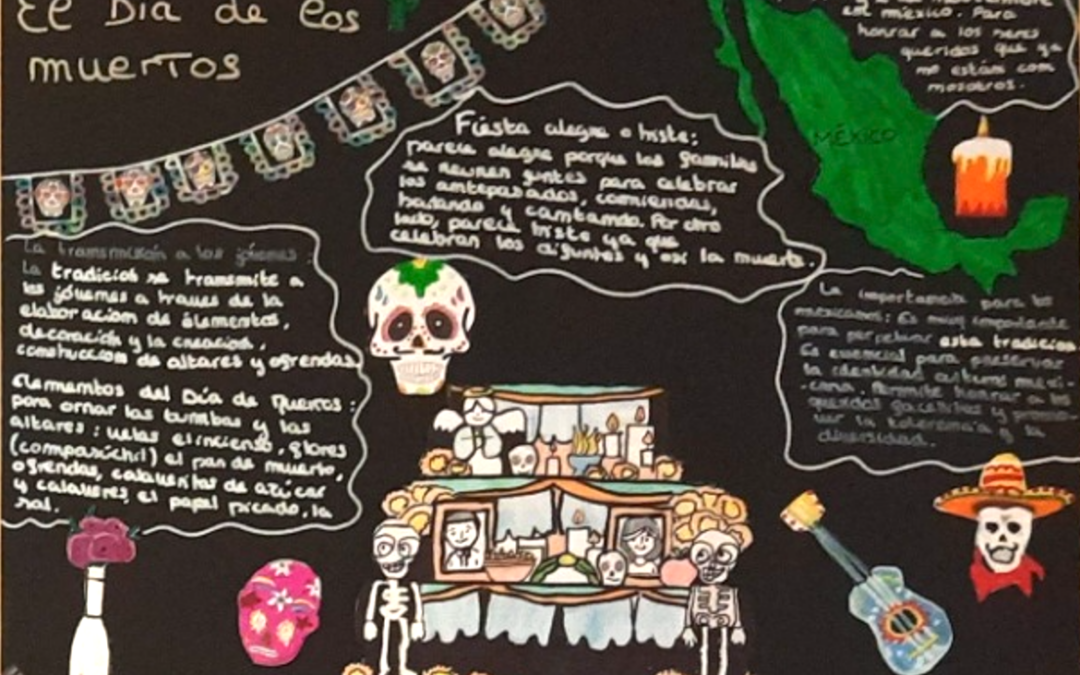 El Día de los
muertos
en méxico. Para
honrar a los seres
queridos que ya
no están con
nosotros.
MÉXICO
Fiésta alegre o triste:
parece alegre porque las familias
se reunen juntes para celebrar
los antepasados, comiendas,
bailando y cantando. Por otro
lado, parece triste ya que
celebran los difuntes y así la muerte.
La transmisión a los jóvenes.
La tradición se transmite a
los jóvenes a traves de la
elaboración de élementos,
decoración y la creación,
construccion de altares y ofrendas
Elementos del Día de Muertos:
para ornar las tumbas y las
altares: velas el incienso, flores
(compasúchil) el pan de muerto,
ofrendas, calaveritas de azúcar
y calaveres, el papel picado, la
sal.
La importancia para los
mexicanos: Es muy importante
para perpetuar esta tradicion
Es esencial para preservar
la identidad cultural mexi-
cana. Permite honrar a los
queridos
la tolerancia y la
diversidad.